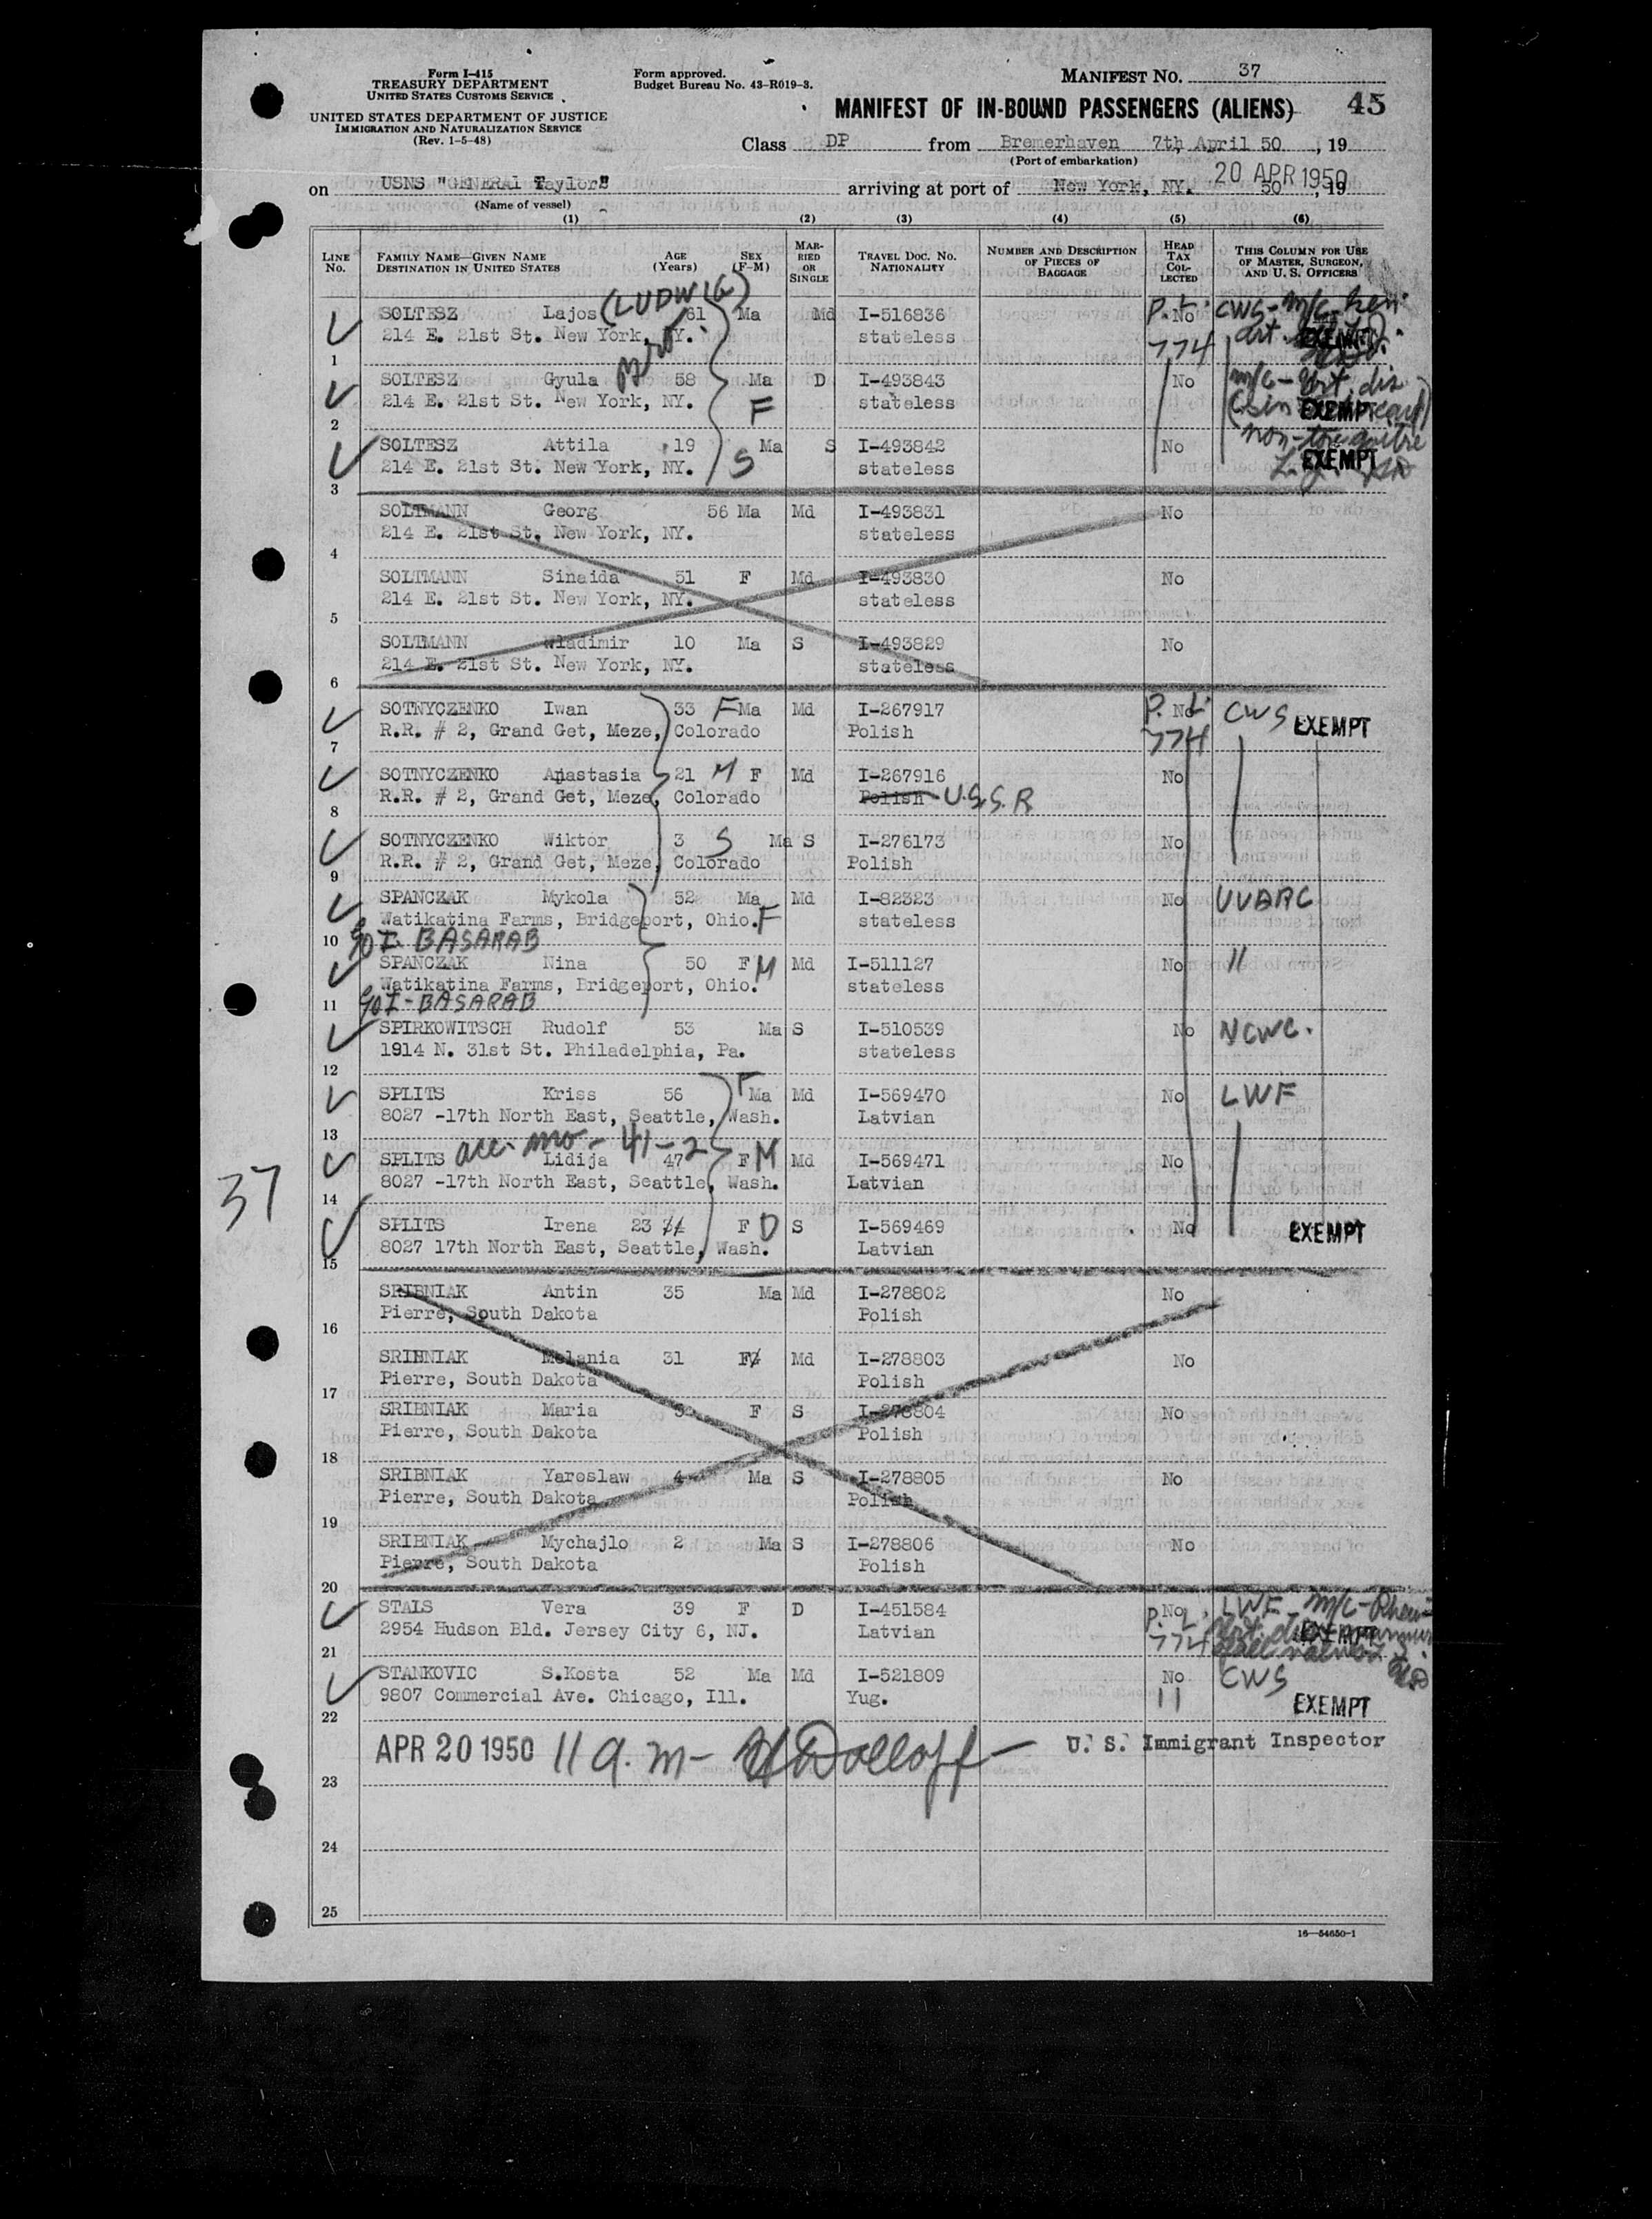 Form I-415
TREASURY DEPARTMENT
UNITED STATES CUSTOMS SERVICE
UNITED STATES DEPARTMENT OF JUSTICE
IMMIGRATION AND NATURALIZATION SERVICE
(Rev. 1-5-48)
Form approved.
Budget Bureau No. 43-R019-3.
MANIFEST NO. 37
MANIFEST OF IN-BOUND PASSENGERS (ALIENS) 45
Class DP from Bremerhaven 7th April 50, 19
(Port of embarkation)
20 APR 1950
on USNS "GENERAL Taylor" arriving at port of New York, NY. 50, 19
(Name of vessel)
(1) (2) (3) (4) (5) (6)
LINE NO. FAMILY NAME—GIVEN NAME DESTINATION IN UNITED STATES AGE (Years) SEX (F-M) MARRIED OR SINGLE TRAVEL DOC. NO. NATIONALITY NUMBER AND DESCRIPTION OF PIECES OF BAGGAGE HEAD TAX COLLECTED THIS COLUMN FOR USE OF MASTER, SURGEON, AND U. S. OFFICERS
(LUDWIG)
SOLTESZ Lajos 61 Ma Md I-516836 P.L. No CWS - m/c
214 E. 21st St. New York, NY. stateless 774 EXEMPT
1
SOLTESZ Gyula 58 Ma D I-493843 No m/c
214 E. 21st St. New York, NY. F stateless EXEMPT
2
SOLTESZ Attila 19 Ma S I-493842 No
214 E. 21st St. New York, NY. S stateless EXEMPT
3
SOLTMANN Georg 56 Ma Md I-493831 No
214 E. 21st St. New York, NY. stateless
4
SOLTMANN Sinaida 51 F Md I-493830 No
214 E. 21st St. New York, NY. stateless
5
SOLTMANN Wladimir 10 Ma S I-493829 No
214 E. 21st St. New York, NY. stateless
6
SOTNYCZENKO Iwan 33 F Ma Md I-267917 P.L. No CWS EXEMPT
R.R. # 2, Grand Get, Meze, Colorado Polish 774
7
SOTNYCZENKO Anastasia 21 M F Md I-267916 No
R.R. # 2, Grand Get, Meze, Colorado Polish U.S.S.R
8
SOTNYCZENKO Wiktor 3 S Ma S I-276173 No
R.R. # 2, Grand Get, Meze, Colorado Polish
9
SPANCZAK Mykola 52 Ma Md I-82323 No UUARC
Watikatina Farms, Bridgeport, Ohio. F stateless
10 c/o I. BASARAB
SPANCZAK Nina 50 F M Md I-511127 No "
Watikatina Farms, Bridgeport, Ohio. stateless
11 c/o I-BASARAB
SPIRKOWITSCH Rudolf 53 Ma S I-510539 No NCWC.
1914 N. 31st St. Philadelphia, Pa. stateless
12
SPLITS Kriss 56 F Ma Md I-569470 No LWF
8027 -17th North East, Seattle, Wash. Latvian
13
SPLITS Lidija 47 F M Md I-569471 No
8027 -17th North East, Seattle, Wash. Latvian
37
14
SPLITS Irena 23 F D S I-569469 No EXEMPT
8027 17th North East, Seattle, Wash. Latvian
15
SRIBNIAK Antin 35 Ma Md I-278802 No
Pierre, South Dakota Polish
16
SRIBNIAK Melania 31 F Md I-278803 No
Pierre, South Dakota Polish
17
SRIBNIAK Maria F S I-278804 No
Pierre, South Dakota Polish
18
SRIBNIAK Yaroslaw 4 Ma S I-278805 No
Pierre, South Dakota Polish
19
SRIBNIAK Mychajlo 2 Ma S I-278806 No
Pierre, South Dakota Polish
20
STALS Vera 39 F D I-451584 No LWF - m/c
2954 Hudson Bld. Jersey City 6, NJ. Latvian P.L. 774 EXEMPT
21
STANKOVIC S.Kosta 52 Ma Md I-521809 No CWS
9807 Commercial Ave. Chicago, Ill. Yug. 11 EXEMPT
22
APR 20 1950 11 a.m - U. S. Immigrant Inspector
23
24
25
16—54650-1